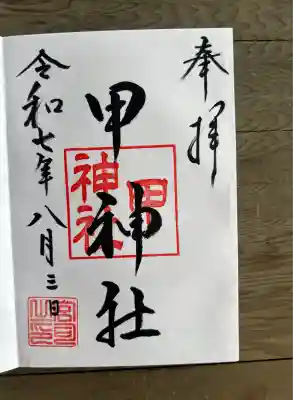 奉拝
甲神社
甲神社
令和七年八月三日
宮司之印